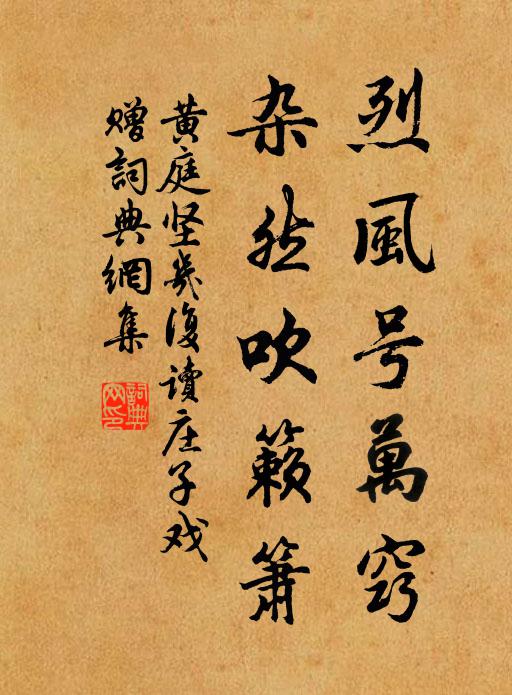 烈風号萬窍
杂然吹籁箫
黄庭坚㡬復讀庄子戏
赠詞典網集
詞典
网印